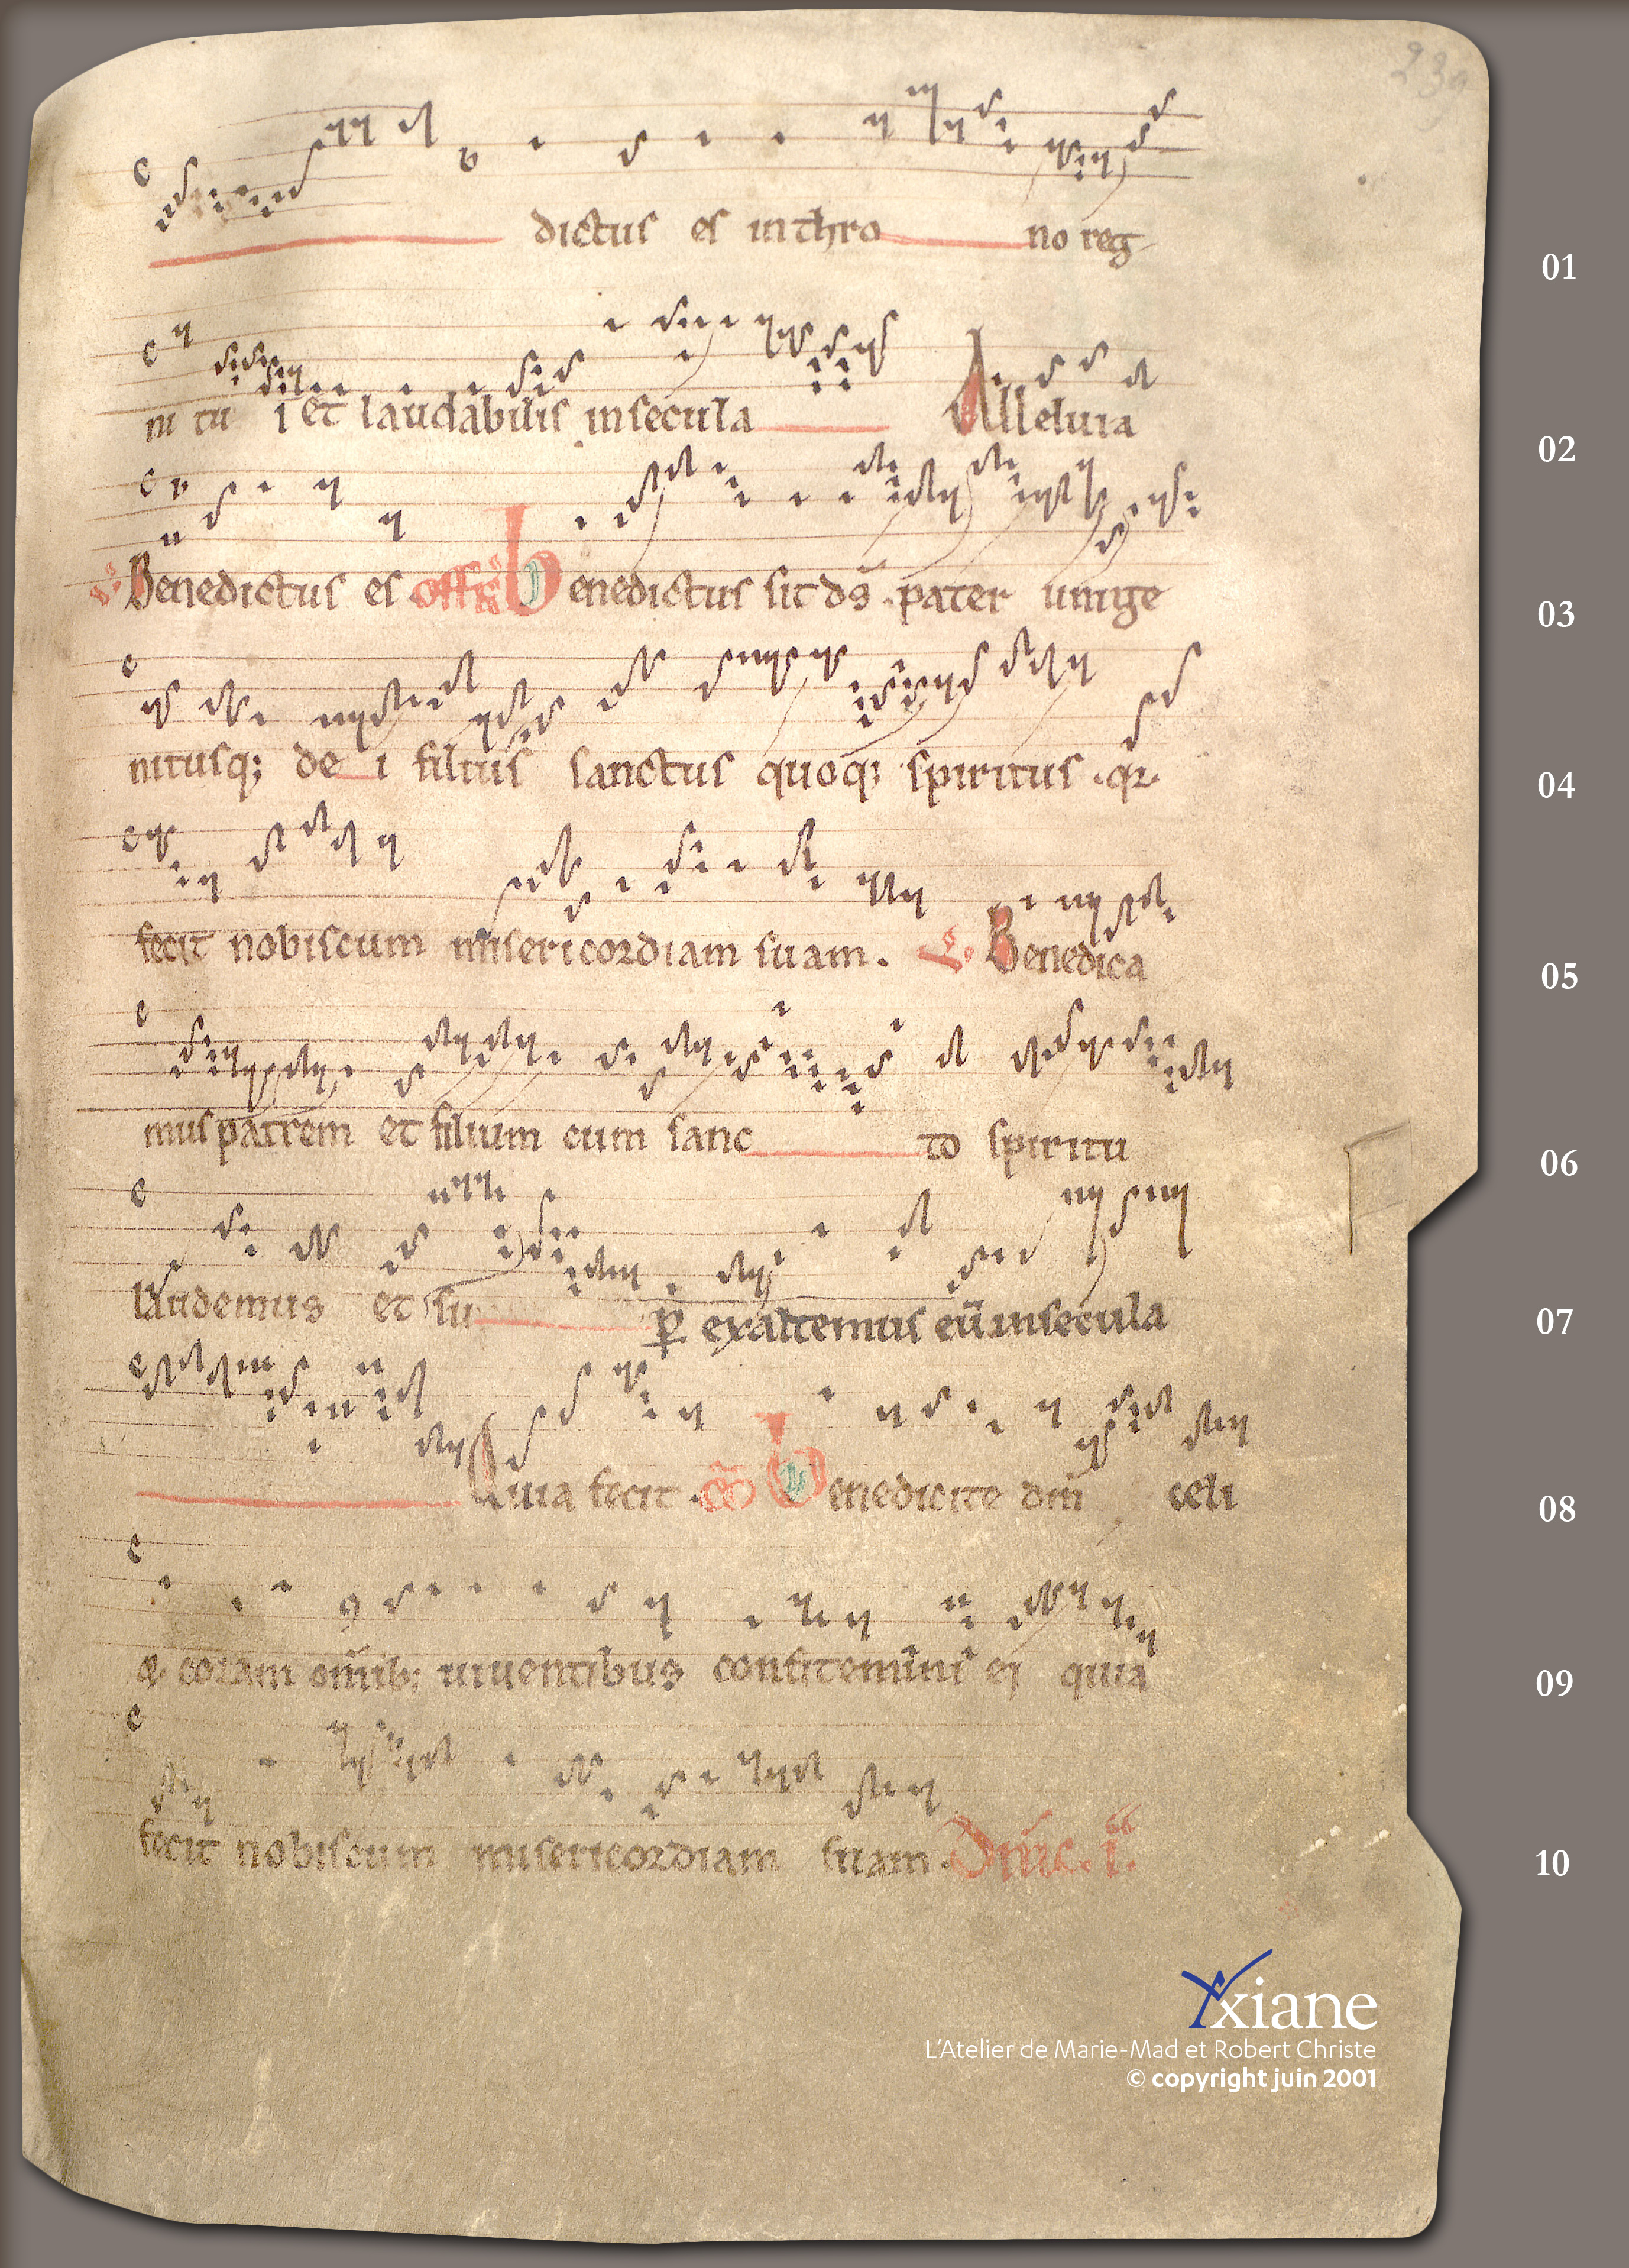 239
dictus es in thro no reg 01
ni tu i et laudabilis in secula Alleluia 02
V. Benedictus es offr̄ Benedictus sit ds̄ . pater unige 03
nitusq; de i filius sanctus quoq; spiritus . qr. 04
fecit nobiscum misericordiam suam . V. Benedica 05
mus patrem et filium cum sanc to spiritu 06
laudemus et su ꝑ exaltemus eū in secula 07
Quia fecit . cō Benedicite dm̄ celi 08
& coram om̄ib; uiuentibus confitemini ei quia 09
fecit nobiscum misericordiam suam . Dnīc. i. 10
Yxiane
L'Atelier de Marie-Mad et Robert Christe
© copyright juin 2001